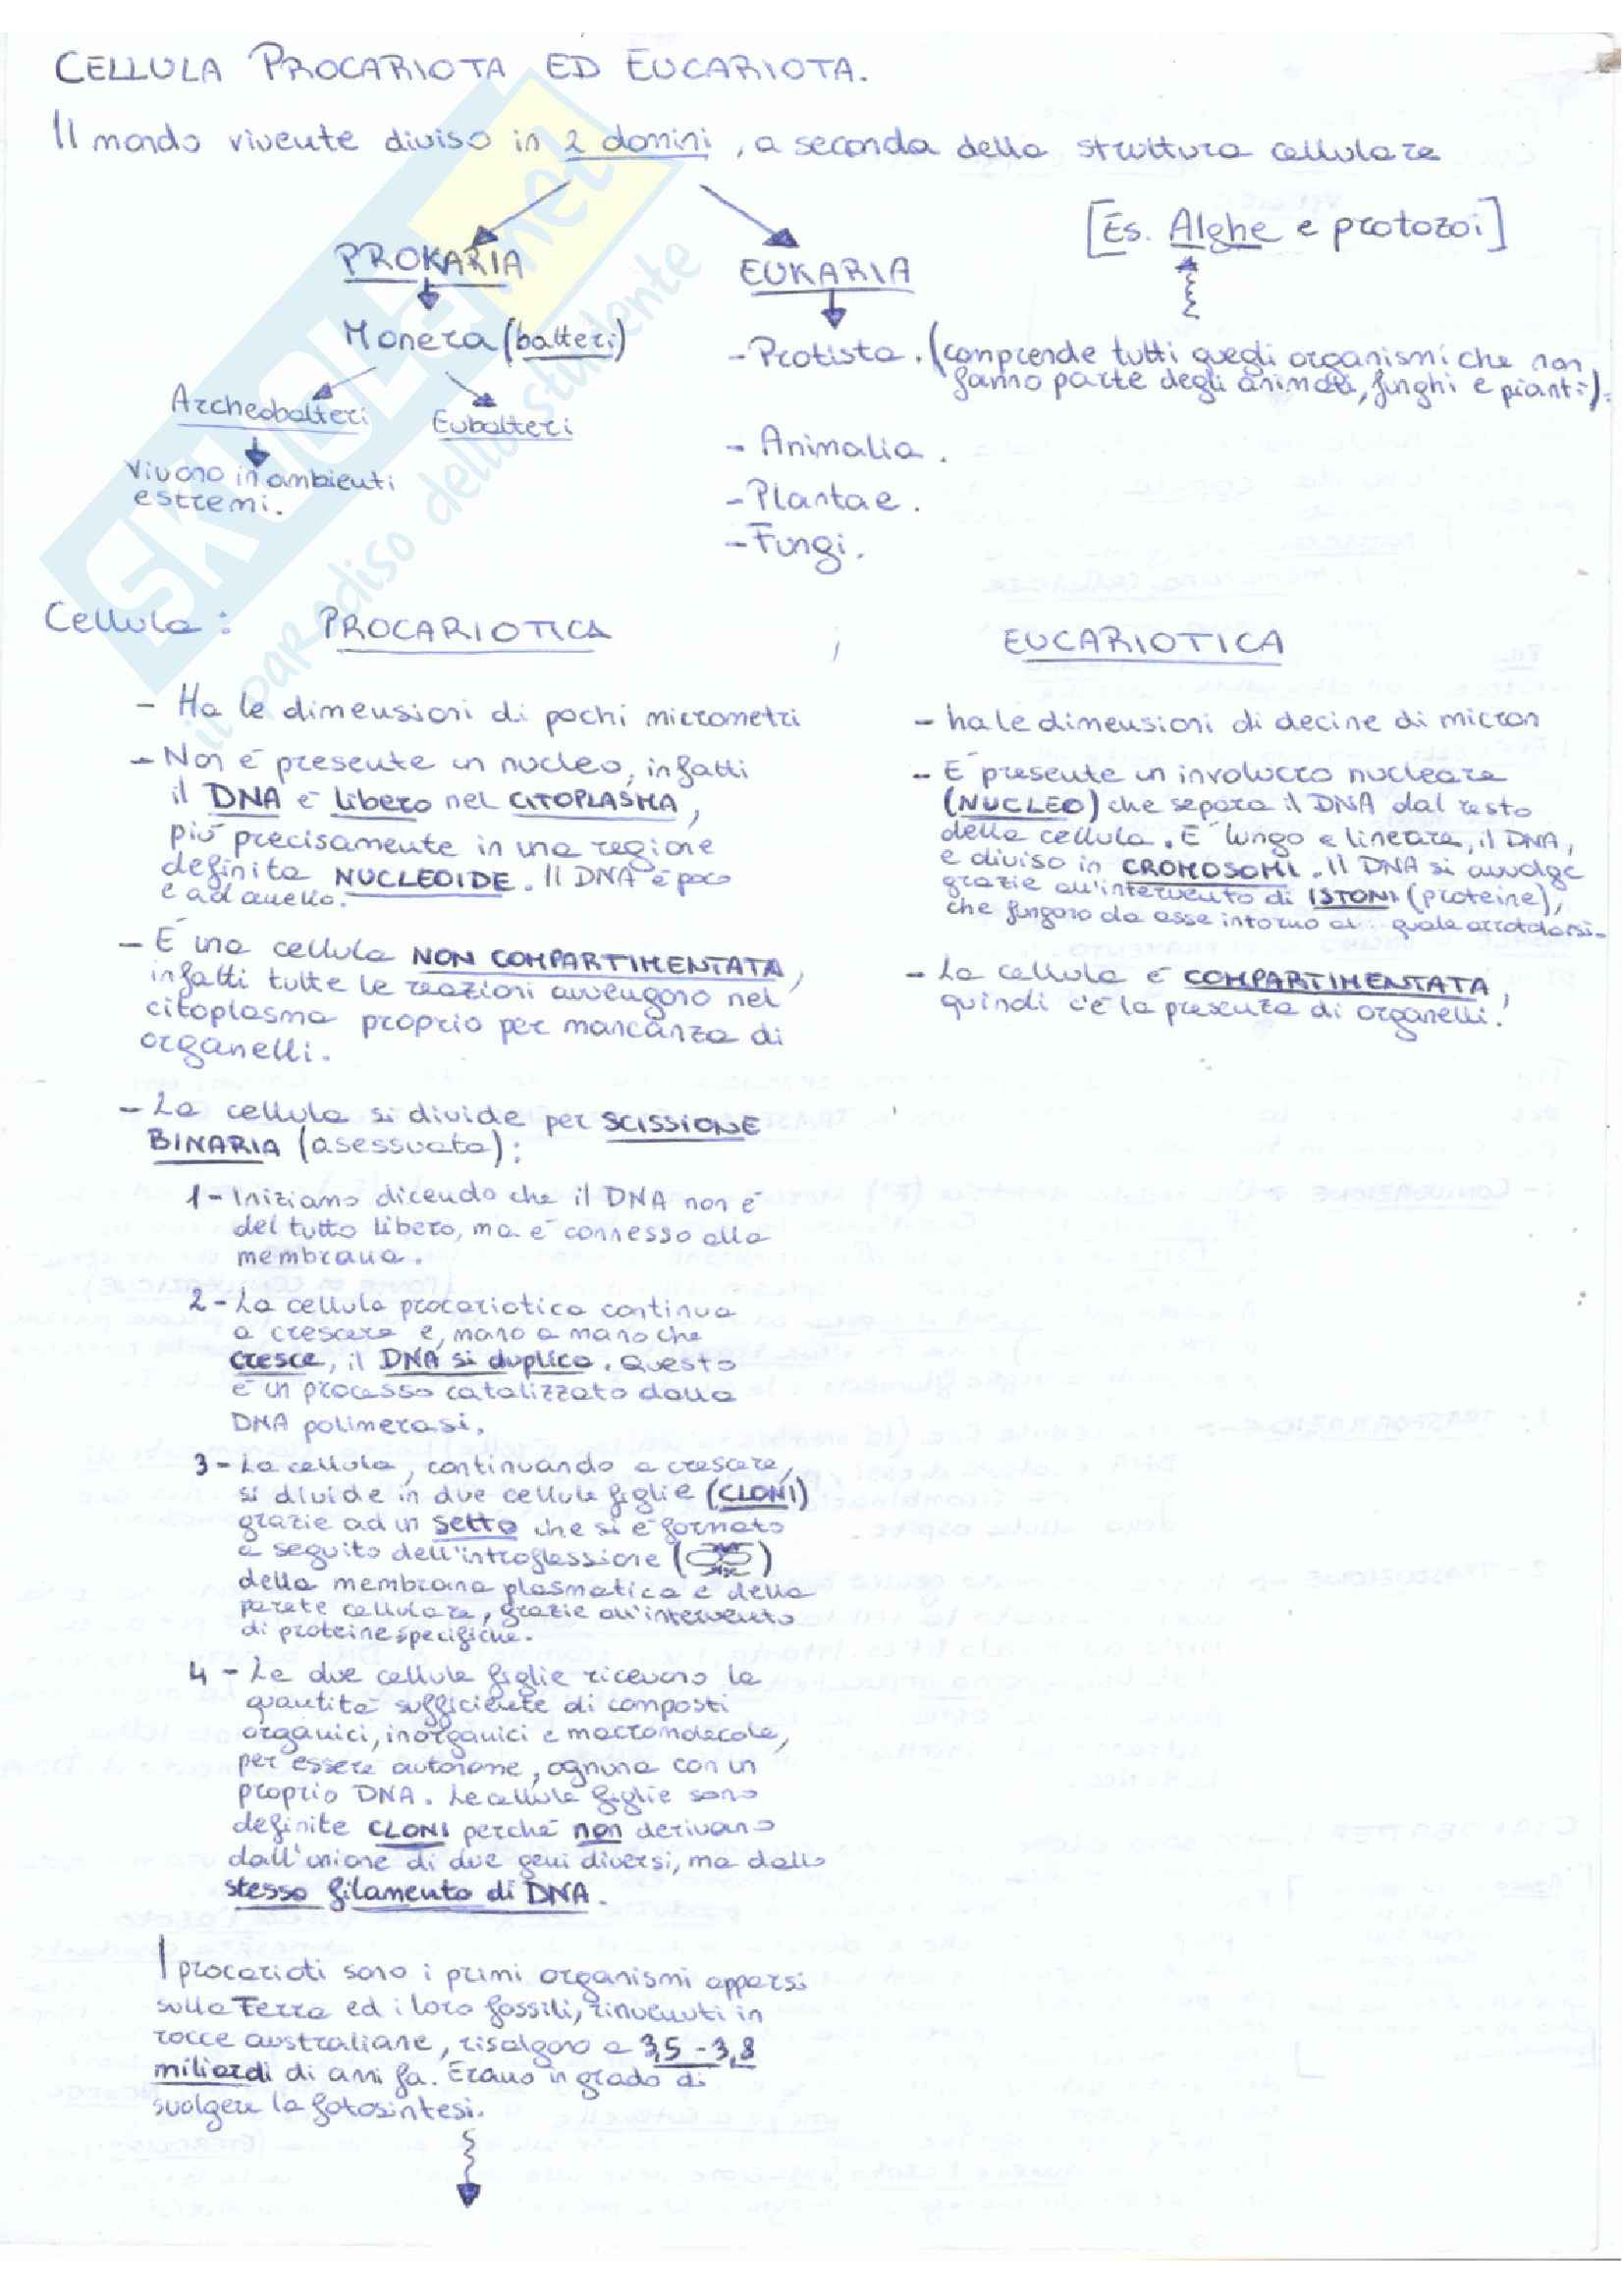 CELLULA PROCARIOTA ED EUCARIOTA.
Il mondo vivente diviso in 2 domini, a seconda della struttura cellulare
[Es. Alghe e protozoi]
PROKARIA
EUKARIA
Monera (batteri)
- Protista. (comprende tutti quegli organismi che non
fanno parte degli animali, funghi e pianti).
Archeobatteri
Eubatteri
- Animalia.
Vivono in ambienti
estremi.
- Plantae.
- Fungi.
Cellula: PROCARIOTICA , EUCARIOTICA
- Ha le dimensioni di pochi micrometri
- Non è presente un nucleo, infatti
il DNA è libero nel CITOPLASMA,
più precisamente in una regione
definita NUCLEOIDE. Il DNA è poco
e ad anello.
- È una cellula NON COMPARTIMENTATA,
infatti tutte le reazioni avvengono nel
citoplasma proprio per mancanza di
organelli.
- La cellula si divide per SCISSIONE
BINARIA (asessuata):
1- Iniziamo dicendo che il DNA non è
del tutto libero, ma è connesso alla
membrana.
2- La cellula procariotica continua
a crescere e, mano a mano che
cresce, il DNA si duplica. Questo
è un processo catalizzato dalla
DNA polimerasi.
3- La cellula, continuando a crescere,
si divide in due cellule figlie (CLONI)
grazie ad un setto che si è formato
a seguito dell'introflessione ( )
della membrana plasmatica e della
parete cellulare, grazie all'intervento
di proteine specifiche.
4- Le due cellule figlie ricevono la
quantità sufficiente di composti
organici, inorganici e macromolecole,
per essere autonome, ognuna con un
proprio DNA. Le cellule figlie sono
definite CLONI perché non derivano
dall'unione di due geni diversi, ma dallo
stesso filamento di DNA.
I procarioti sono i primi organismi apparsi
sulla Terra ed i loro fossili, rinvenuti in
rocce australiane, risalgono a 3,5 - 3,8
miliardi di anni fa. Erano in grado di
svolgere la fotosintesi.
- ha le dimensioni di decine di micron
- È presente un involucro nucleare
(NUCLEO) che separa il DNA dal resto
della cellula. È lungo e lineare, il DNA,
e diviso in CROMOSOMI. Il DNA si avvolge
grazie all'intervento di ISTONI (proteine),
che fungono da asse intorno al quale arrotolarsi.
- La cellula è COMPARTIMENTATA,
quindi c'è la presenza di organelli.
SKUOLA.net
il paradiso dello studente